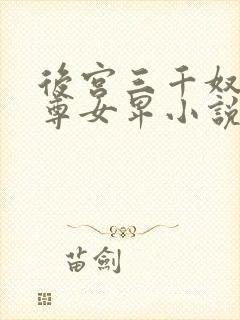 後宮三千奴
尊女卑小説
苗劍